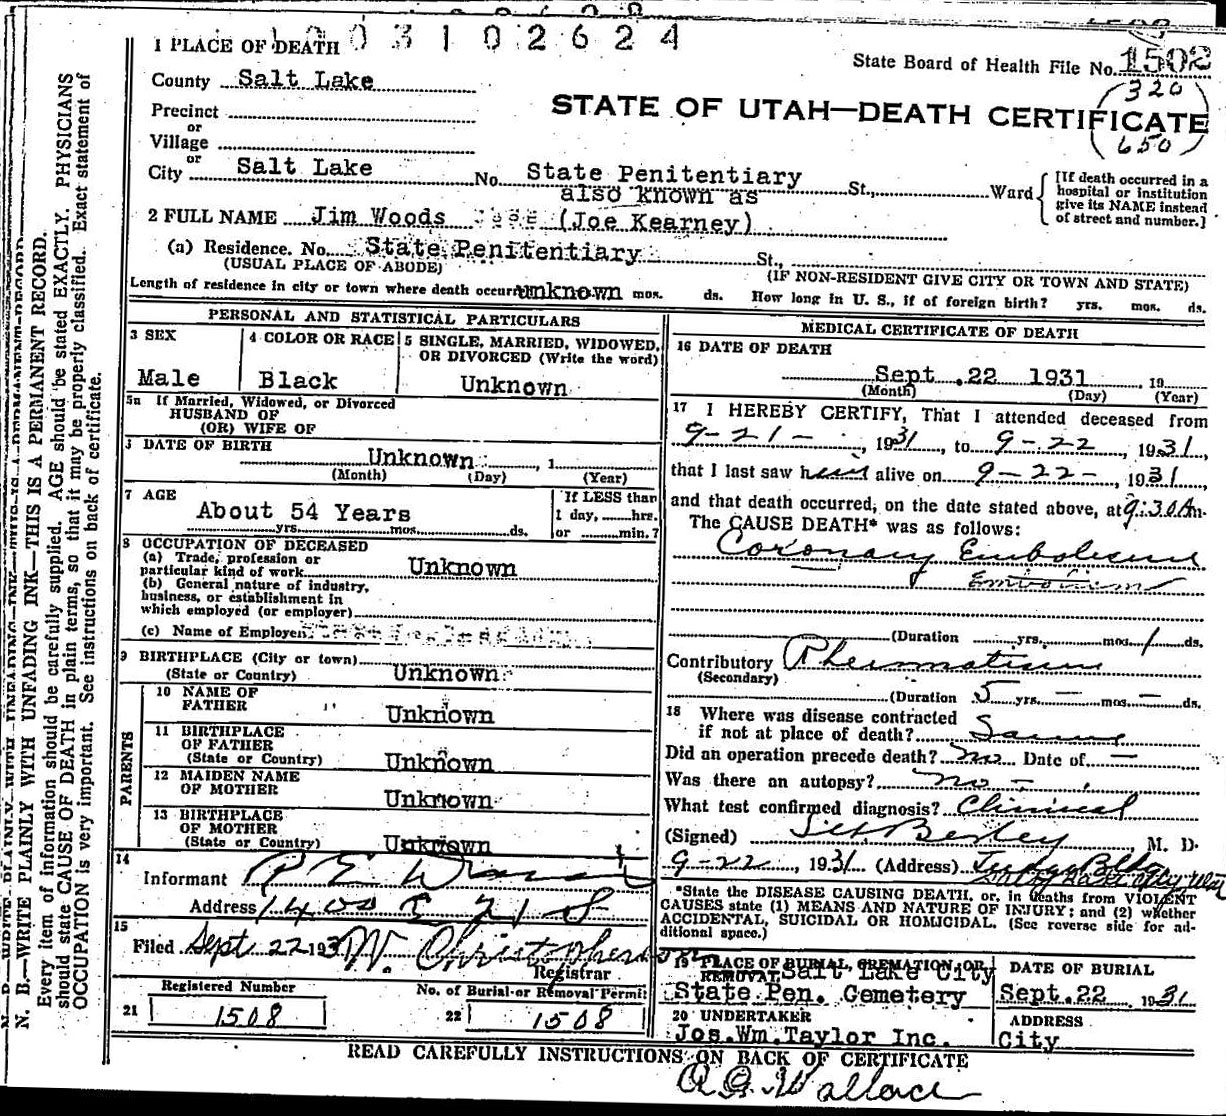 003102624
1 PLACE OF DEATH
State Board of Health File No. 1502
County Salt Lake
(320)
STATE OF UTAH—DEATH CERTIFICATE
(650)
Precinct
or
Village
or
City Salt Lake No. State Penitentiary St., Ward
[If death occurred in a
hospital or institution
give its NAME instead
of street and number.]
also known as
2 FULL NAME Jim Woods (Joe Kearney)
(a) Residence. No. State Penitentiary St.,
(USUAL PLACE OF ABODE) (IF NON-RESIDENT GIVE CITY OR TOWN AND STATE)
Length of residence in city or town where death occurred unknown mos. ds. How long in U. S., if of foreign birth? yrs. mos. ds.
PERSONAL AND STATISTICAL PARTICULARS
3 SEX
Male
4 COLOR OR RACE
Black
5 SINGLE, MARRIED, WIDOWED,
OR DIVORCED (Write the word)
Unknown
5a If Married, Widowed, or Divorced
HUSBAND OF
(OR) WIFE OF
DATE OF BIRTH
Unknown , 1
(Month) (Day) (Year)
7 AGE
About 54 Years
yrs. mos. ds.
If LESS than
1 day, hrs.
or min.?
8 OCCUPATION OF DECEASED
(a) Trade, profession or
particular kind of work Unknown
(b) General nature of industry,
business, or establishment in
which employed (or employer)
(c) Name of Employer
9 BIRTHPLACE (City or town)
(State or Country) Unknown
PARENTS
10 NAME OF
FATHER Unknown
11 BIRTHPLACE
OF FATHER
(State or Country) Unknown
12 MAIDEN NAME
OF MOTHER Unknown
13 BIRTHPLACE
OF MOTHER
(State or Country) Unknown
14
Informant R E
Address 1400 E 21 S
15
Filed Sept 22 1931 W. Christopherson
Registrar
Registered Number
21 1508
No. of Burial or Removal Permit
22 1508
MEDICAL CERTIFICATE OF DEATH
16 DATE OF DEATH
Sept .22 1931 , 19
(Month) (Day) (Year)
17 I HEREBY CERTIFY, That I attended deceased from
9-21- , 1931, to 9-22 , 1931,
that I last saw him alive on 9-22- , 1931,
and that death occurred, on the date stated above, at 9:30 Am.
The CAUSE DEATH* was as follows:
Coronary Embolism
Embolism
(Duration yrs. mos. 1 ds.
Contributory Rheumatism
(Secondary)
(Duration 5 yrs. — mos. — ds.
18 Where was disease contracted
if not at place of death? Same
Did an operation precede death? no Date of —
Was there an autopsy? no —
What test confirmed diagnosis? Clinical
(Signed) , M. D.
9-22 , 1931 (Address) Bldg
*State the DISEASE CAUSING DEATH, or, in deaths from VIOLENT
CAUSES state (1) MEANS AND NATURE OF INJURY; and (2) whether
ACCIDENTAL, SUICIDAL OR HOMICIDAL. (See reverse side for ad-
ditional space.)
19 PLACE OF BURIAL, CREMATION, OR
REMOVAL Salt Lake City
State Pen. Cemetery
DATE OF BURIAL
Sept.22 1931
20 UNDERTAKER
Jos.Wm.Taylor Inc.
ADDRESS
City
READ CAREFULLY INSTRUCTIONS ON BACK OF CERTIFICATE
Wallace
N. B.—WRITE PLAINLY WITH UNFADING INK—THIS IS A PERMANENT RECORD.
Every item of information should be carefully supplied. AGE should be stated EXACTLY. PHYSICIANS
should state CAUSE OF DEATH in plain terms, so that it may be properly classified. Exact statement of
OCCUPATION is very important. See instructions on back of certificate.